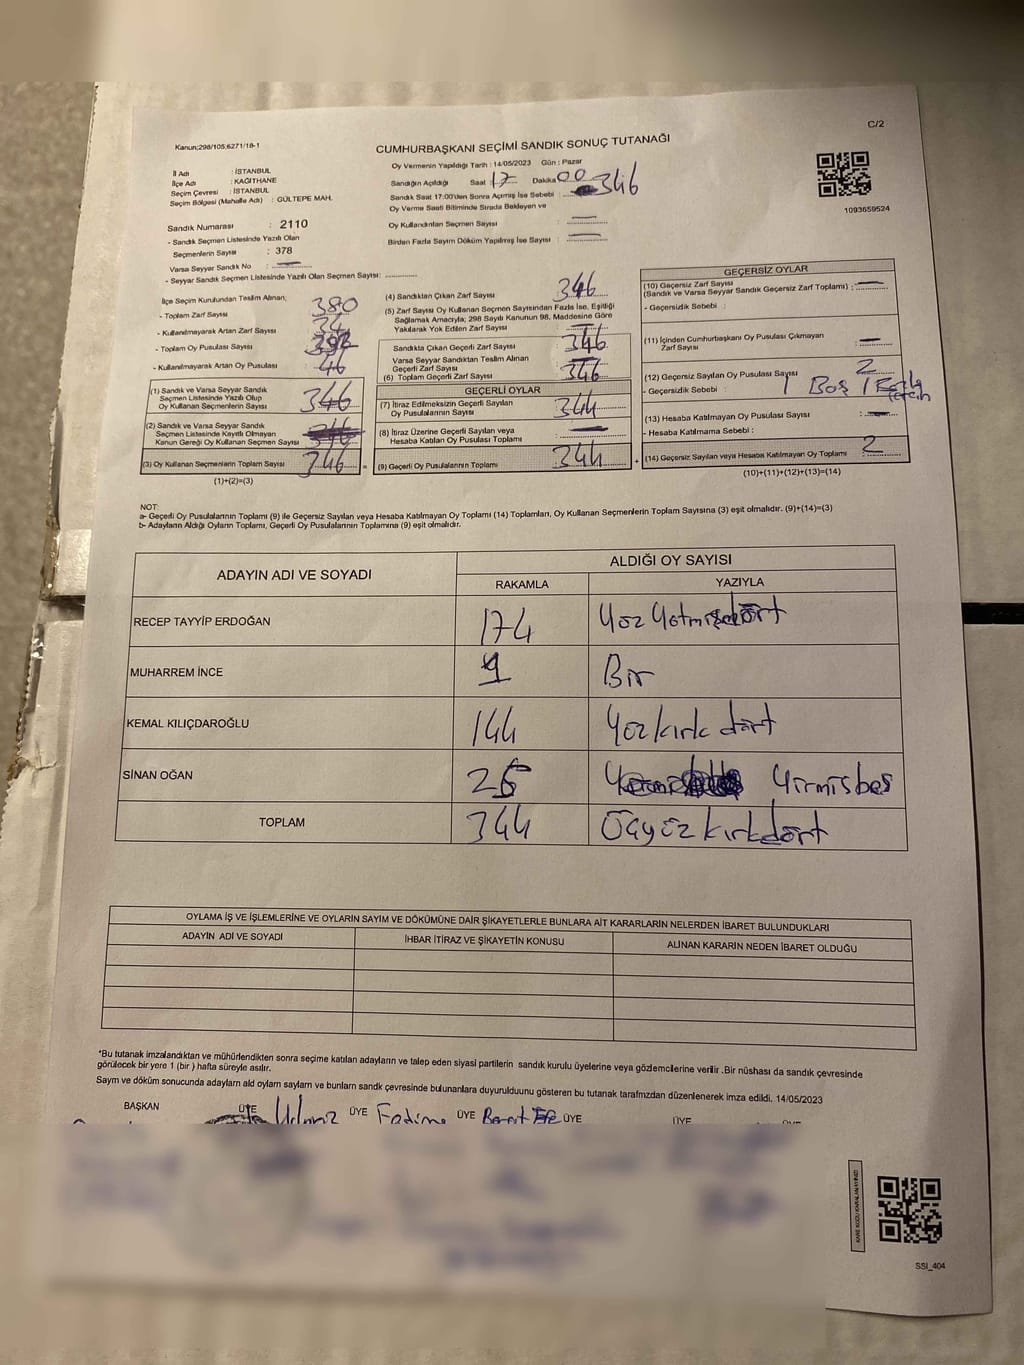 C/2
Kanun;298/105;6271/18-1
CUMHURBAŞKANI SEÇİMİ SANDIK SONUÇ TUTANAĞI
İl Adı : İSTANBUL
İlçe Adı : KAĞITHANE
Seçim Çevresi : İSTANBUL
Seçim Bölgesi (Mahalle Adı) : GÜLTEPE MAH.
Sandık Numarası : 2110
- Sandık Seçmen Listesinde Yazılı Olan
Seçmenlerin Sayısı : 378
Varsa Seyyar Sandık No : —
- Seyyar Sandık Seçmen Listesinde Yazılı Olan Seçmen Sayısı: ............
Oy Vermenin Yapıldığı Tarih : 14/05/2023 Gün : Pazar
Sandığın Açıldığı Saat 17 Dakika 00
Sandık Saat 17:00'den Sonra Açmış İse Sebebi : 346
Oy Verme Saati Bitiminde Sırada Bekleyen ve
Oy Kullandırılan Seçmen Sayısı : —
Birden Fazla Sayım Döküm Yapılmış İse Sayısı : —
1093659524
İlçe Seçim Kurulundan Teslim Alınan;
- Toplam Zarf Sayısı 380
- Kullanılmayarak Artan Zarf Sayısı 34
- Toplam Oy Pusulası Sayısı 392
- Kullanılmayarak Artan Oy Pusulası 46
(1) Sandık ve Varsa Seyyar Sandık
Seçmen Listesinde Yazılı Olup
Oy Kullanan Seçmenlerin Sayısı 346
(2) Sandık ve Varsa Seyyar Sandık
Seçmen Listesinde Kayıtlı Olmayan
Kanun Gereği Oy Kullanan Seçmen Sayısı
(3) Oy Kullanan Seçmenlerin Toplam Sayısı 346 =
(1)+(2)=(3)
(4) Sandıktan Çıkan Zarf Sayısı 346
(5) Zarf Sayısı Oy Kullanan Seçmen Sayısından Fazla İse, Eşitliği
Sağlamak Amacıyla; 298 Sayılı Kanunun 98. Maddesine Göre
Yakılarak Yok Edilen Zarf Sayısı —
Sandıkta Çıkan Geçerli Zarf Sayısı 346
Varsa Seyyar Sandıktan Teslim Alınan
Geçerli Zarf Sayısı —
(6) Toplam Geçerli Zarf Sayısı 346
GEÇERLİ OYLAR
(7) İtiraz Edilmeksizin Geçerli Sayılan
Oy Pusulalarının Sayısı 344
(8) İtiraz Üzerine Geçerli Sayılan veya
Hesaba Katılan Oy Pusulası Toplamı —
(9) Geçerli Oy Pusulalarının Toplamı 344 +
GEÇERSİZ OYLAR
(10) Geçersiz Zarf Sayısı
(Sandık ve Varsa Seyyar Sandık Geçersiz Zarf Toplamı) : —
- Geçersizlik Sebebi :
(11) İçinden Cumhurbaşkanı Oy Pusulası Çıkmayan
Zarf Sayısı —
(12) Geçersiz Sayılan Oy Pusulası Sayısı 2
- Geçersizlik Sebebi : 1 Boş 1
(13) Hesaba Katılmayan Oy Pusulası Sayısı : —
- Hesaba Katılmama Sebebi :
(14) Geçersiz Sayılan veya Hesaba Katılmayan Oy Toplamı 2
(10)+(11)+(12)+(13)=(14)
NOT:
a- Geçerli Oy Pusulalarının Toplamı (9) ile Geçersiz Sayılan veya Hesaba Katılmayan Oy Toplamı (14) Toplamları, Oy Kullanan Seçmenlerin Toplam Sayısına (3) eşit olmalıdır. (9)+(14)=(3)
b- Adayların Aldığı Oyların Toplamı, Geçerli Oy Pusulalarının Toplamına (9) eşit olmalıdır.
ADAYIN ADI VE SOYADI
ALDIĞI OY SAYISI
RAKAMLA YAZIYLA
RECEP TAYYİP ERDOĞAN 174 Yüz Yetmişdört
MUHARREM İNCE 1 Bir
KEMAL KILIÇDAROĞLU 144 Yüzkırk dört
SİNAN OĞAN 25 Yirmisbeş
TOPLAM 344 Üçyüzkırkdört
OYLAMA İŞ VE İŞLEMLERİNE VE OYLARIN SAYIM VE DÖKÜMÜNE DAİR ŞİKAYETLERLE BUNLARA AİT KARARLARIN NELERDEN İBARET BULUNDUKLARI
ADAYIN ADI VE SOYADI İHBAR İTİRAZ VE ŞİKAYETİN KONUSU ALINAN KARARIN NEDEN İBARET OLDUĞU
*Bu tutanak imzalandıktan ve mühürlendikten sonra seçime katılan adayların ve talep eden siyasi partilerin sandık kurulu üyelerine veya gözlemcilerine verilir .Bir nüshası da sandık çevresinde
görülecek bir yere 1 (bir ) hafta süreyle asılır.
Sayım ve döküm sonucunda adayların ald oyların sayları ve bunların sandk çevresinde bulunanlara duyurulduunu gösteren bu tutanak tarafmzdan düzenlenerek imza edildi. 14/05/2023
BAŞKAN ÜYE ÜYE Fadime ÜYE Berat ÜYE ÜYE ÜYE
KARE KODU KARALAMAYINIZ!
SSİ_404